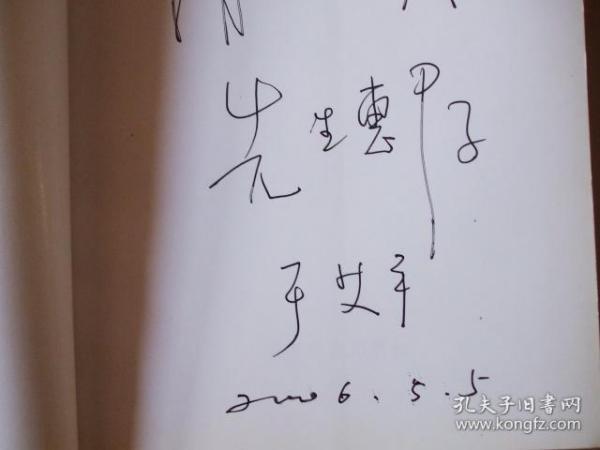 先生惠存
于艾平
2006.5.5
孔夫子旧書网
www.kongfz.com